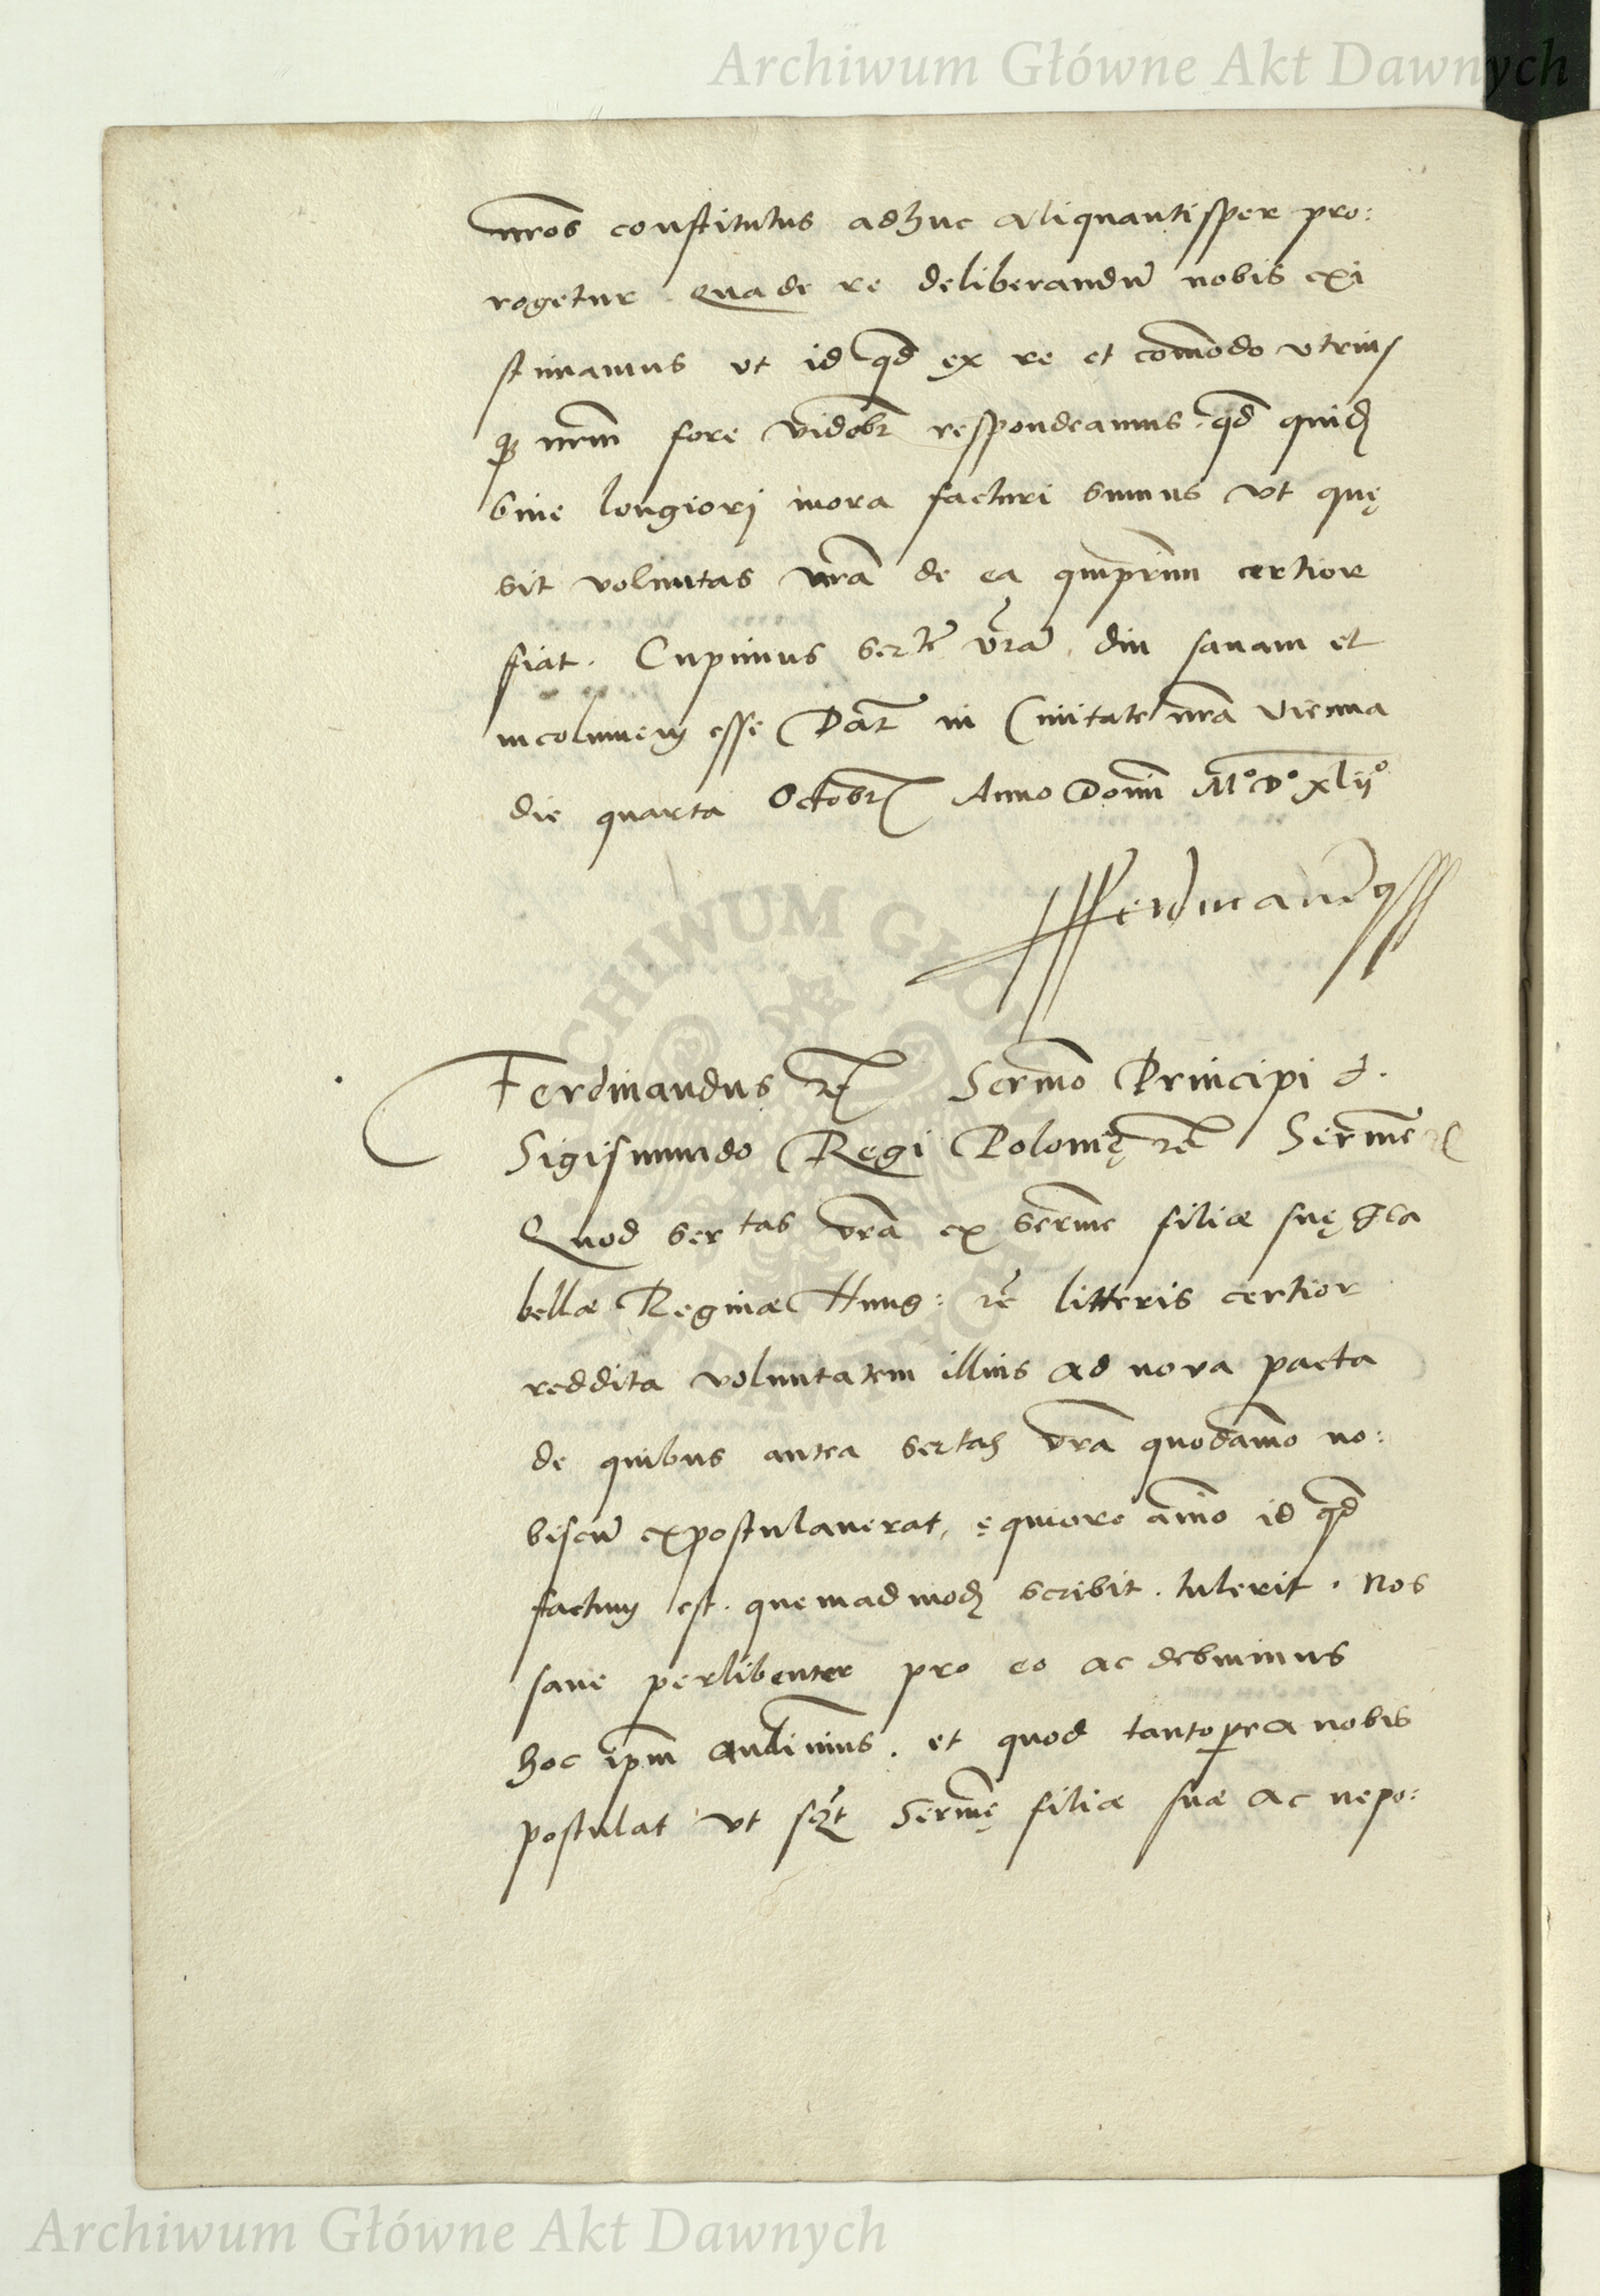 Archiwum Główne Akt Dawnych
nr̃os constitutus adhuc aliquantisper pro:
rogetur. Qua de re deliberandũ nobis exi
stimamus ut id qd̃ ex re et com̃odo utrius
qȝ nrm̃ fore videbr̃ respondeamus. qd̃ quidȝ
sine longiorj mora facturi sumus ut quę
sit voluntas nr̃a de ea qm̃primũ certior
fiat. Cupimus sertẽ vr̃ã diu sanam et
incolumem esse Dat̃ in Civitate nr̃a Vienna
die quarta Octobr̃ Anno Domĩ M°D°xlij°
Ferdinandus
Ferdinandus ꝛc̃ Sermo Principi d.
Sigismundo Regi Polonię ꝛc̃ Serme ꝛc̃
Quod sertas vr̃a ex serme filiæ suę Isa
bellæ Reginæ Hung: ꝛc̃ litteris certior
reddita voluntatem illius ad nova pacta
de quibus antea sertas vr̃a quodam̃o no:
biscũ expostulaverat, equiore aĩmo id qd̃
factum est. quemadmodȝ scribit. tulerit. Nos
sane perlibenter pro eo ac debuimus
hoc ipm̃ audivimus. et quod tantopere a nobis
postulat ut Sermę filiæ suæ ac nepo:
ARCHIWUM GŁÓWNE AKT DAWNYCH
Archiwum Główne Akt Dawnych